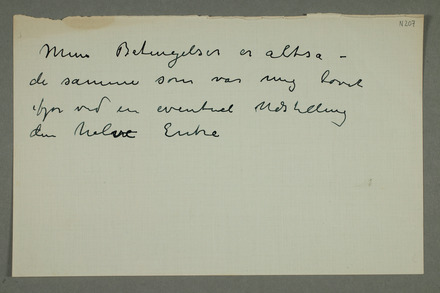 N 207
Mine Betingelser er altsa –
de samme som var mig lovet
ifjor ved en eventuel Udstilling
den halve Entre